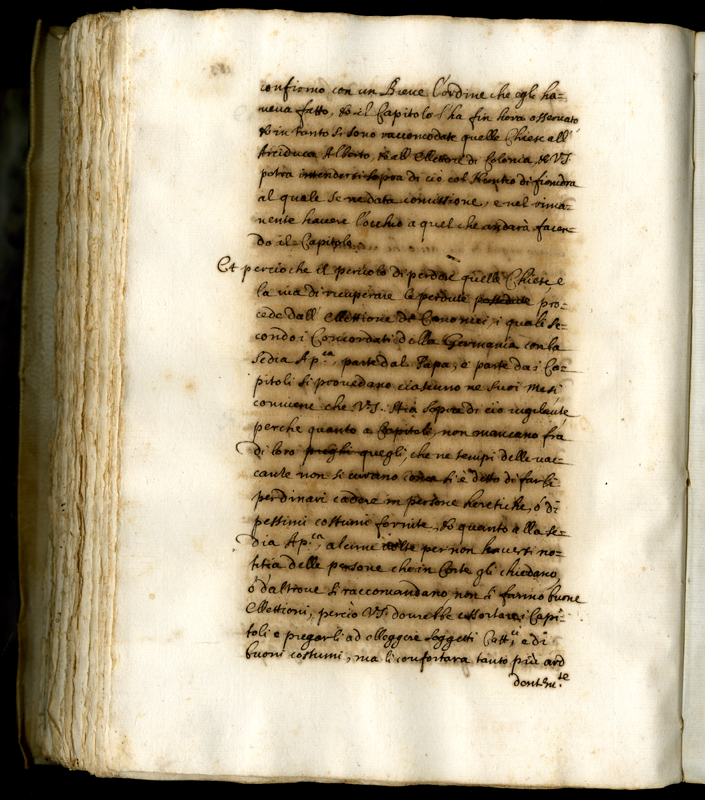 confirmo con un Breve l'ordine che egli ha=
neva fatto, & il Capitolo l'ha fin hora osservato
& in tanto si sono raccomodate quelle Chiese all'
Arciduca Alberto, & all' Elettore di Colonia, & V.S.
potrà intendersi sopra di ciò col Nuntio di fiandra
al quale se ne data comissione, e nel rima=
nente havere l'occhio a quel che andarà facen=
do il Capitolo.
Et percioche il pericolo di perdere quelle Chiese e
la via di ricuperare le perdute pro=
cede dall' Ellettione de Canonici, i quali se=
condo i Concordati della Germania con la
Sedia Ap.ca, parte dal Papa, e parte da i Ca=
pitoli si provedano ciascuno ne suoi mesi
conviene che V.S. stia sopra di ciò vigilante
perche quanto a Capitoli, non mancano frà
di loro quegli, che ne tempi delle vac=
cante non si curano si è detto di farli
per dinari cadere in persone heretiche, ò di
pessimi costumi fornite, & quanto alla se=
dia Ap.ca, alcune volte per non haversi no=
titia delle persone che in Corte gli chiedano,
ò d'altrove si raccomandano non si fanno buone
Ellettioni, perciò V.S. dovrebbe essortare i Capi=
toli e pregarli ad elleggere soggetti Catt.ci e di
buoni costumi, ma li confortarà tanto più ard
dentem.te